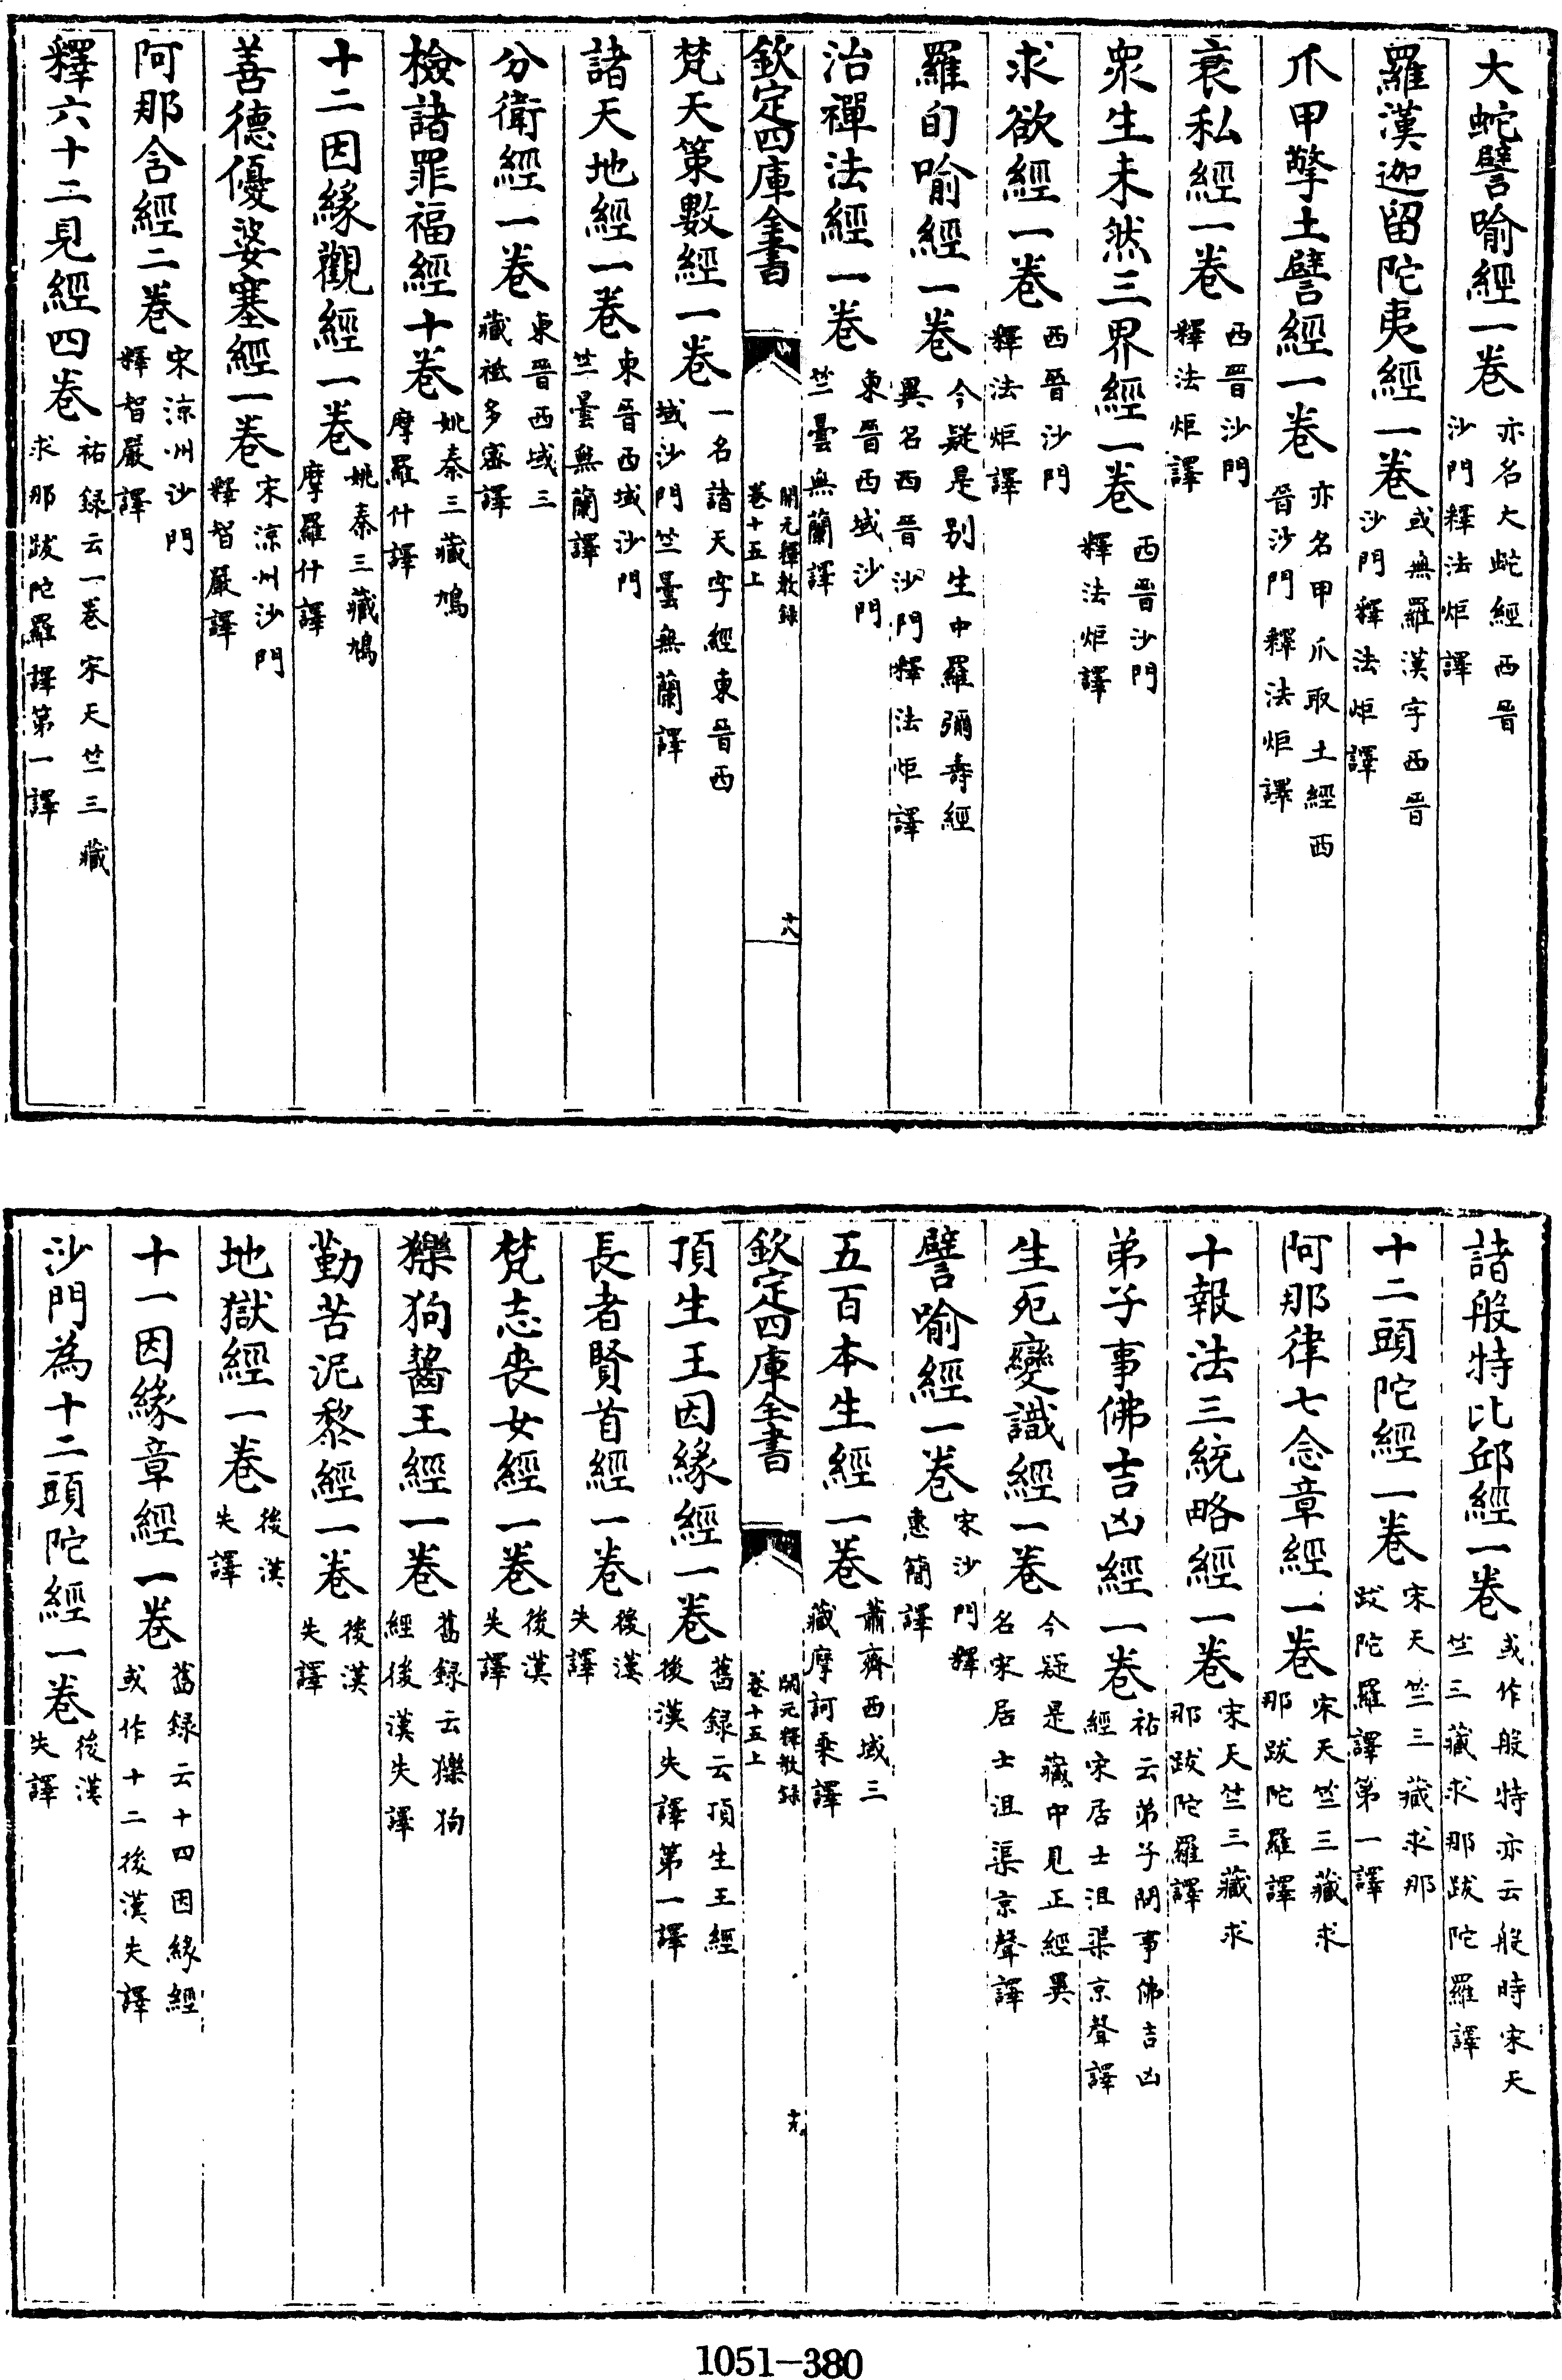 大蛇譬喻經一卷亦名大蛇經西晉沙門釋法炬譯
羅漢迦留陀夷經一卷或無羅漢字西晉沙門釋法炬譯
爪甲擎土譬經一卷亦名甲爪取土經西晉沙門釋法炬譯
衰私經一卷西晉沙門釋法炬譯
衆生未然三界經一卷西晉沙門釋法炬譯
求欲經一卷西晉沙門釋法炬譯
羅旬喻經一卷今疑是别生中羅彌壽經異名西晉沙門釋法炬譯
治禪法經一卷東晉西域沙門竺曇無蘭譯
欽定四庫全書
開元釋教録
卷十五上
十八
梵天策數經一卷一名諸天字經東晉西域沙門竺曇無蘭譯
諸天地經一卷東晉西域沙門竺曇無蘭譯
分衛經一卷東晉西域三藏祗多蜜譯
檢諸罪福經十卷姚秦三藏鳩摩羅什譯
十二因緣觀經一卷姚秦三藏鳩摩羅什譯
善德優婆塞經一卷宋涼州沙門釋智嚴譯
阿那含經二卷宋涼州沙門釋智嚴譯
釋六十二見經四卷祐録云一卷宋天竺三藏求那跋陀羅譯第一譯
諸般特比邱經一卷或作般特亦云般時宋天竺三藏求那跋陀羅譯
十二頭陀經一卷宋天竺三藏求那跋陀羅譯第一譯
阿那律七念章經一卷宋天竺三藏求那跋陀羅譯
十報法三統略經一卷宋天竺三藏求那跋陀羅譯
弟子事佛吉凶經一卷祐云弟子問事佛吉凶經宋居士沮渠京聲譯
生死變識經一卷今疑是藏中見正經異名宋居士沮渠京聲譯
譬喻經一卷宋沙門釋惠簡譯
五百本生經一卷蕭齊西域三藏摩訶乘譯
欽定四庫全書
開元釋教録
卷十五上
十九
頂生王因緣經一卷舊録云頂生王經後漢失譯第一譯
長者賢首經一卷後漢失譯
梵志喪女經一卷後漢失譯
㹰狗齧王經一卷舊録云㹰狗經後漢失譯
勤苦泥黎經一卷後漢失譯
地獄經一卷後漢失譯
十一因緣章經一卷舊録云十四因緣經或作十二後漢失譯
沙門為十二頭陀經一卷後漢失譯
1051—380